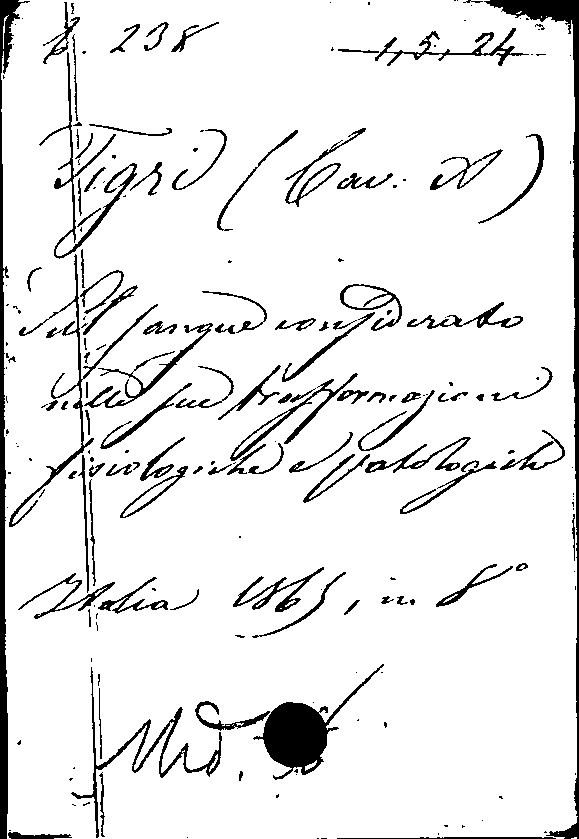 B. 238 1,5,24
Tigri (Cav. A)
Sul sangue considerato
nelle sue trasformazioni
fisiologiche e patologiche
Italia 1865, in 8°
Med.